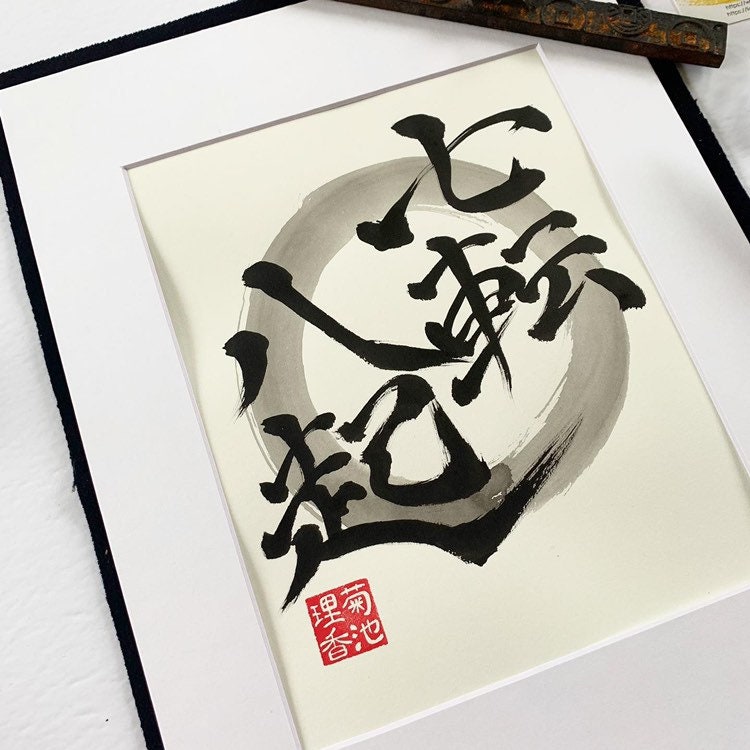 七転
八起
菊池
理香